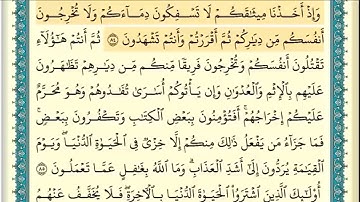 وَإِذْ أَخَذْنَا مِيثَٰقَكُمْ لَا تَسْفِكُونَ دِمَآءَكُمْ وَلَا تُخْرِجُونَ
أَنفُسَكُم مِّن دِيَٰرِكُمْ ثُمَّ أَقْرَرْتُمْ وَأَنتُمْ تَشْهَدُونَ ٨٤ ثُمَّ أَنتُمْ هَٰٓؤُلَآءِ
تَقْتُلُونَ أَنفُسَكُمْ وَتُخْرِجُونَ فَرِيقًا مِّنكُم مِّن دِيَٰرِهِمْ تَظَٰهَرُونَ
عَلَيْهِم بِٱلْإِثْمِ وَٱلْعُدْوَٰنِ وَإِن يَأْتُوكُمْ أُسَٰرَىٰ تُفَٰدُوهُمْ وَهُوَ مُحَرَّمٌ
عَلَيْكُمْ إِخْرَاجُهُمْ ۚ أَفَتُؤْمِنُونَ بِبَعْضِ ٱلْكِتَٰبِ وَتَكْفُرُونَ بِبَعْضٍ ۚ
فَمَا جَزَآءُ مَن يَفْعَلُ ذَٰلِكَ مِنكُمْ إِلَّا خِزْىٌ فِى ٱلْحَيَوٰةِ ٱلدُّنْيَا ۖ وَيَوْمَ
ٱلْقِيَٰمَةِ يُرَدُّونَ إِلَىٰٓ أَشَدِّ ٱلْعَذَابِ ۗ وَمَا ٱللَّهُ بِغَٰفِلٍ عَمَّا تَعْمَلُونَ ٨٥
أُو۟لَٰٓئِكَ ٱلَّذِينَ ٱشْتَرَوُا۟ ٱلْحَيَوٰةَ ٱلدُّنْيَا بِٱلْـَٔاخِرَةِ ۖ فَلَا يُخَفَّفُ عَنْهُمُ